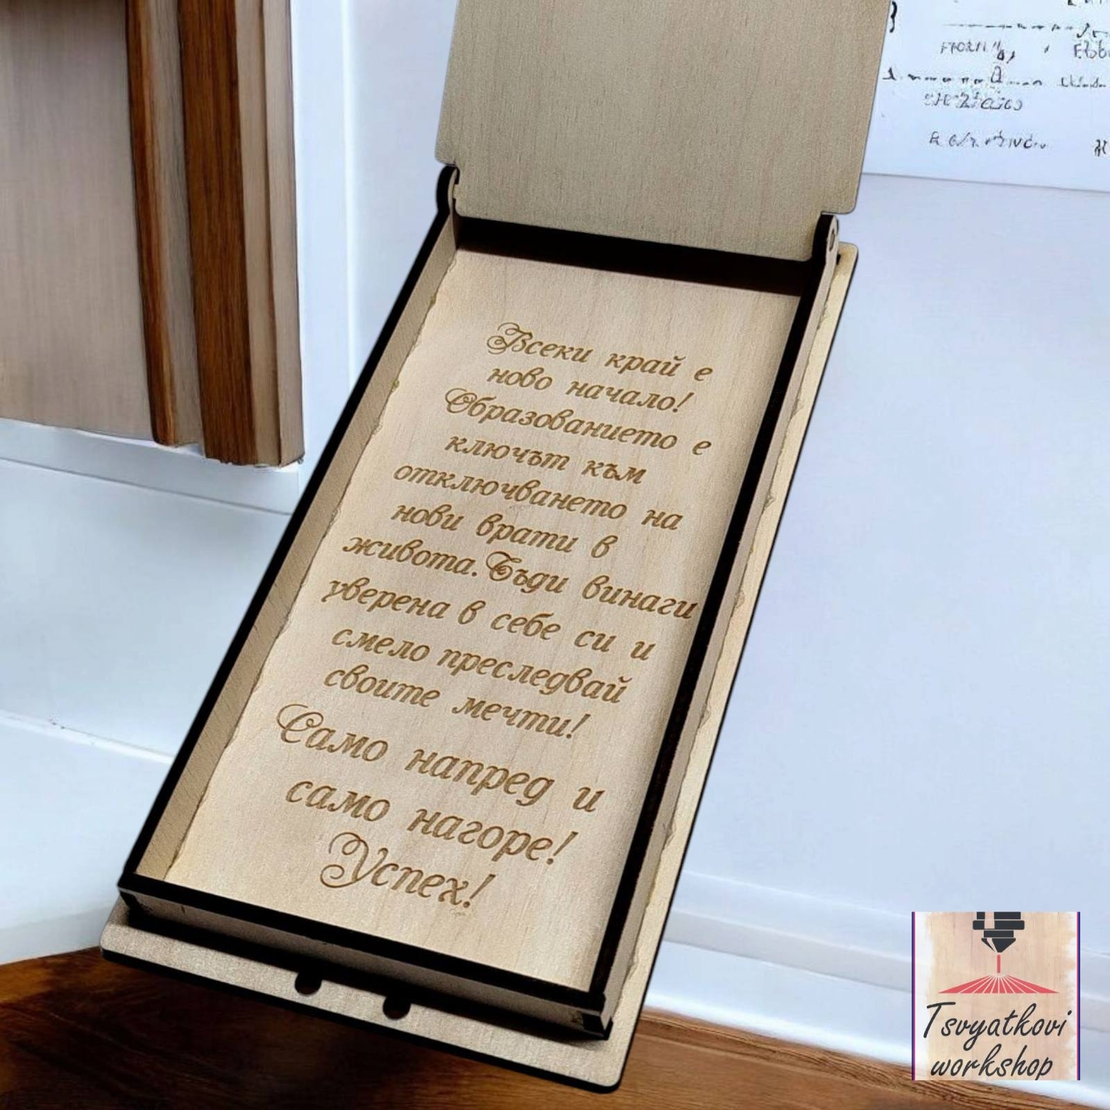 Всеки край е
ново начало!
Образованието е
ключът към
отключването на
нови врати в
живота. Бъди винаги
уверена в себе си и
смело преследвай
своите мечти!
Само напред и
само нагоре!
Успех!
Tsvyatkovi
workshop